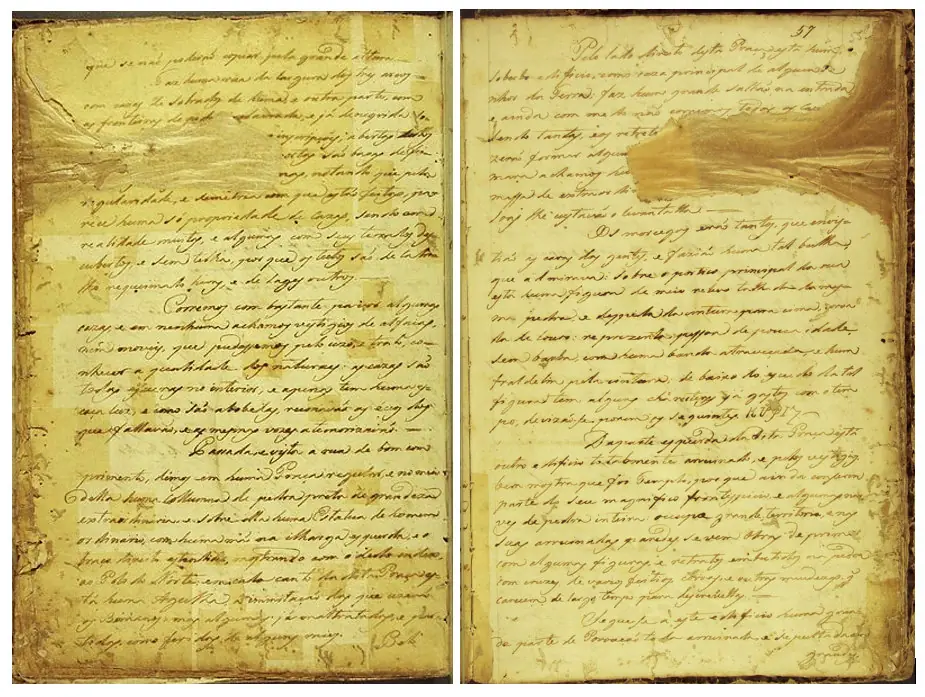 que se não poderão copiar, pela grande altura
Faz huma rua da largura dos tres arcos,
com cazas de sobrados de huma, e outra parte, com
as fronteiras de pedra lavrada, e já denegrida
inscripçoens, abertas
portas são baxas de fei-
nas, notando que pela
regularidade, e semetria com que estão feitas, pa-
rece huma só propriedade de cazas, sendo em
realidade muitas, e algumas com seus terrados des-
cubertos, e sem telha, porque os tectos são de ladri-
lho requeimado huns, e de lages outros.
Corremos com bastante pavor algumas
cazas, e em nenhuma achamos vestigios de alfaias,
nem moveis, que pudessemos pelo uzo, e trato, co-
nhecer a qualidade dos naturaes: as cazas são
todas escuras no interior, e apenas tem huma es-
caça luz, e como são abobedas, resonavão os ecos dos
que fallavão, e as mesmas vozes atemorizavão.
Passada, e vista a rua de bom com-
primento, demos em huma Praça regular, e no meio
della huma collumna de pedra preta de grandeza
extraordinaria, e sobre ella huma Estatua de homem
ordinario, com huma mão na ilharga esquerda, e o
braço direito estendido, mostrando com o dedo index
ao Polo do Norte; em cada canto da dita Praça es-
tá huma Agulha, a imitação das que uzavão
os Romanos, mas algumas já maltratadas, e par-
tidas, como feridas de alguns raios.
Pelo
57
Pelo lado direito desta Praça está hum
soberbo edificio, como caza principal de algum Se-
nhor da Terra; faz hum grande salhão na entrada
e ainda com medo não corremos todas as cazas
sendo tantas, e os retrete
zerão formar algum
mara achamos hu
massa de extraordi
soas lhe custavão o levantalla.
Os morcegos erão tantos, que envis-
tião as caras das gentes, e fazião huma tal bulha,
que admirava: sobre o portico principal da rua
está huma figura de meio relevo talhada da mes-
ma pedra, e despida da cintura para cima, coroa-
da de louro: reprezenta pessoa de pouca idade,
sem barba, com huma banda atraveçada, e hum
fraldelim pela cintura: de baixo do escudo da tal
figura tem alguns characteres já gastos com o tem-
po, devizão-se porem os seguintes
Da parte esquerda da dita Praça está
outro edificio totalmente arruinado, e pelos vestigios
bem mostra que foi Templo, por que ainda conserva
parte do seu magnifico frontespicio, e algumas na-
ves de pedra inteira: occupa grande territorio, e nas
suas arruinadas paredes, se vem obras de primor
com algumas figuras, e retratos embutidos na pedra
com cruzes de varios feitios, corvos, e outras miudezas, que
carecem de largo tempo para descrevellas.
Segue-se a este edificio huma gran-
de parte de Povoação toda arruinada, e sepultada em
grandes